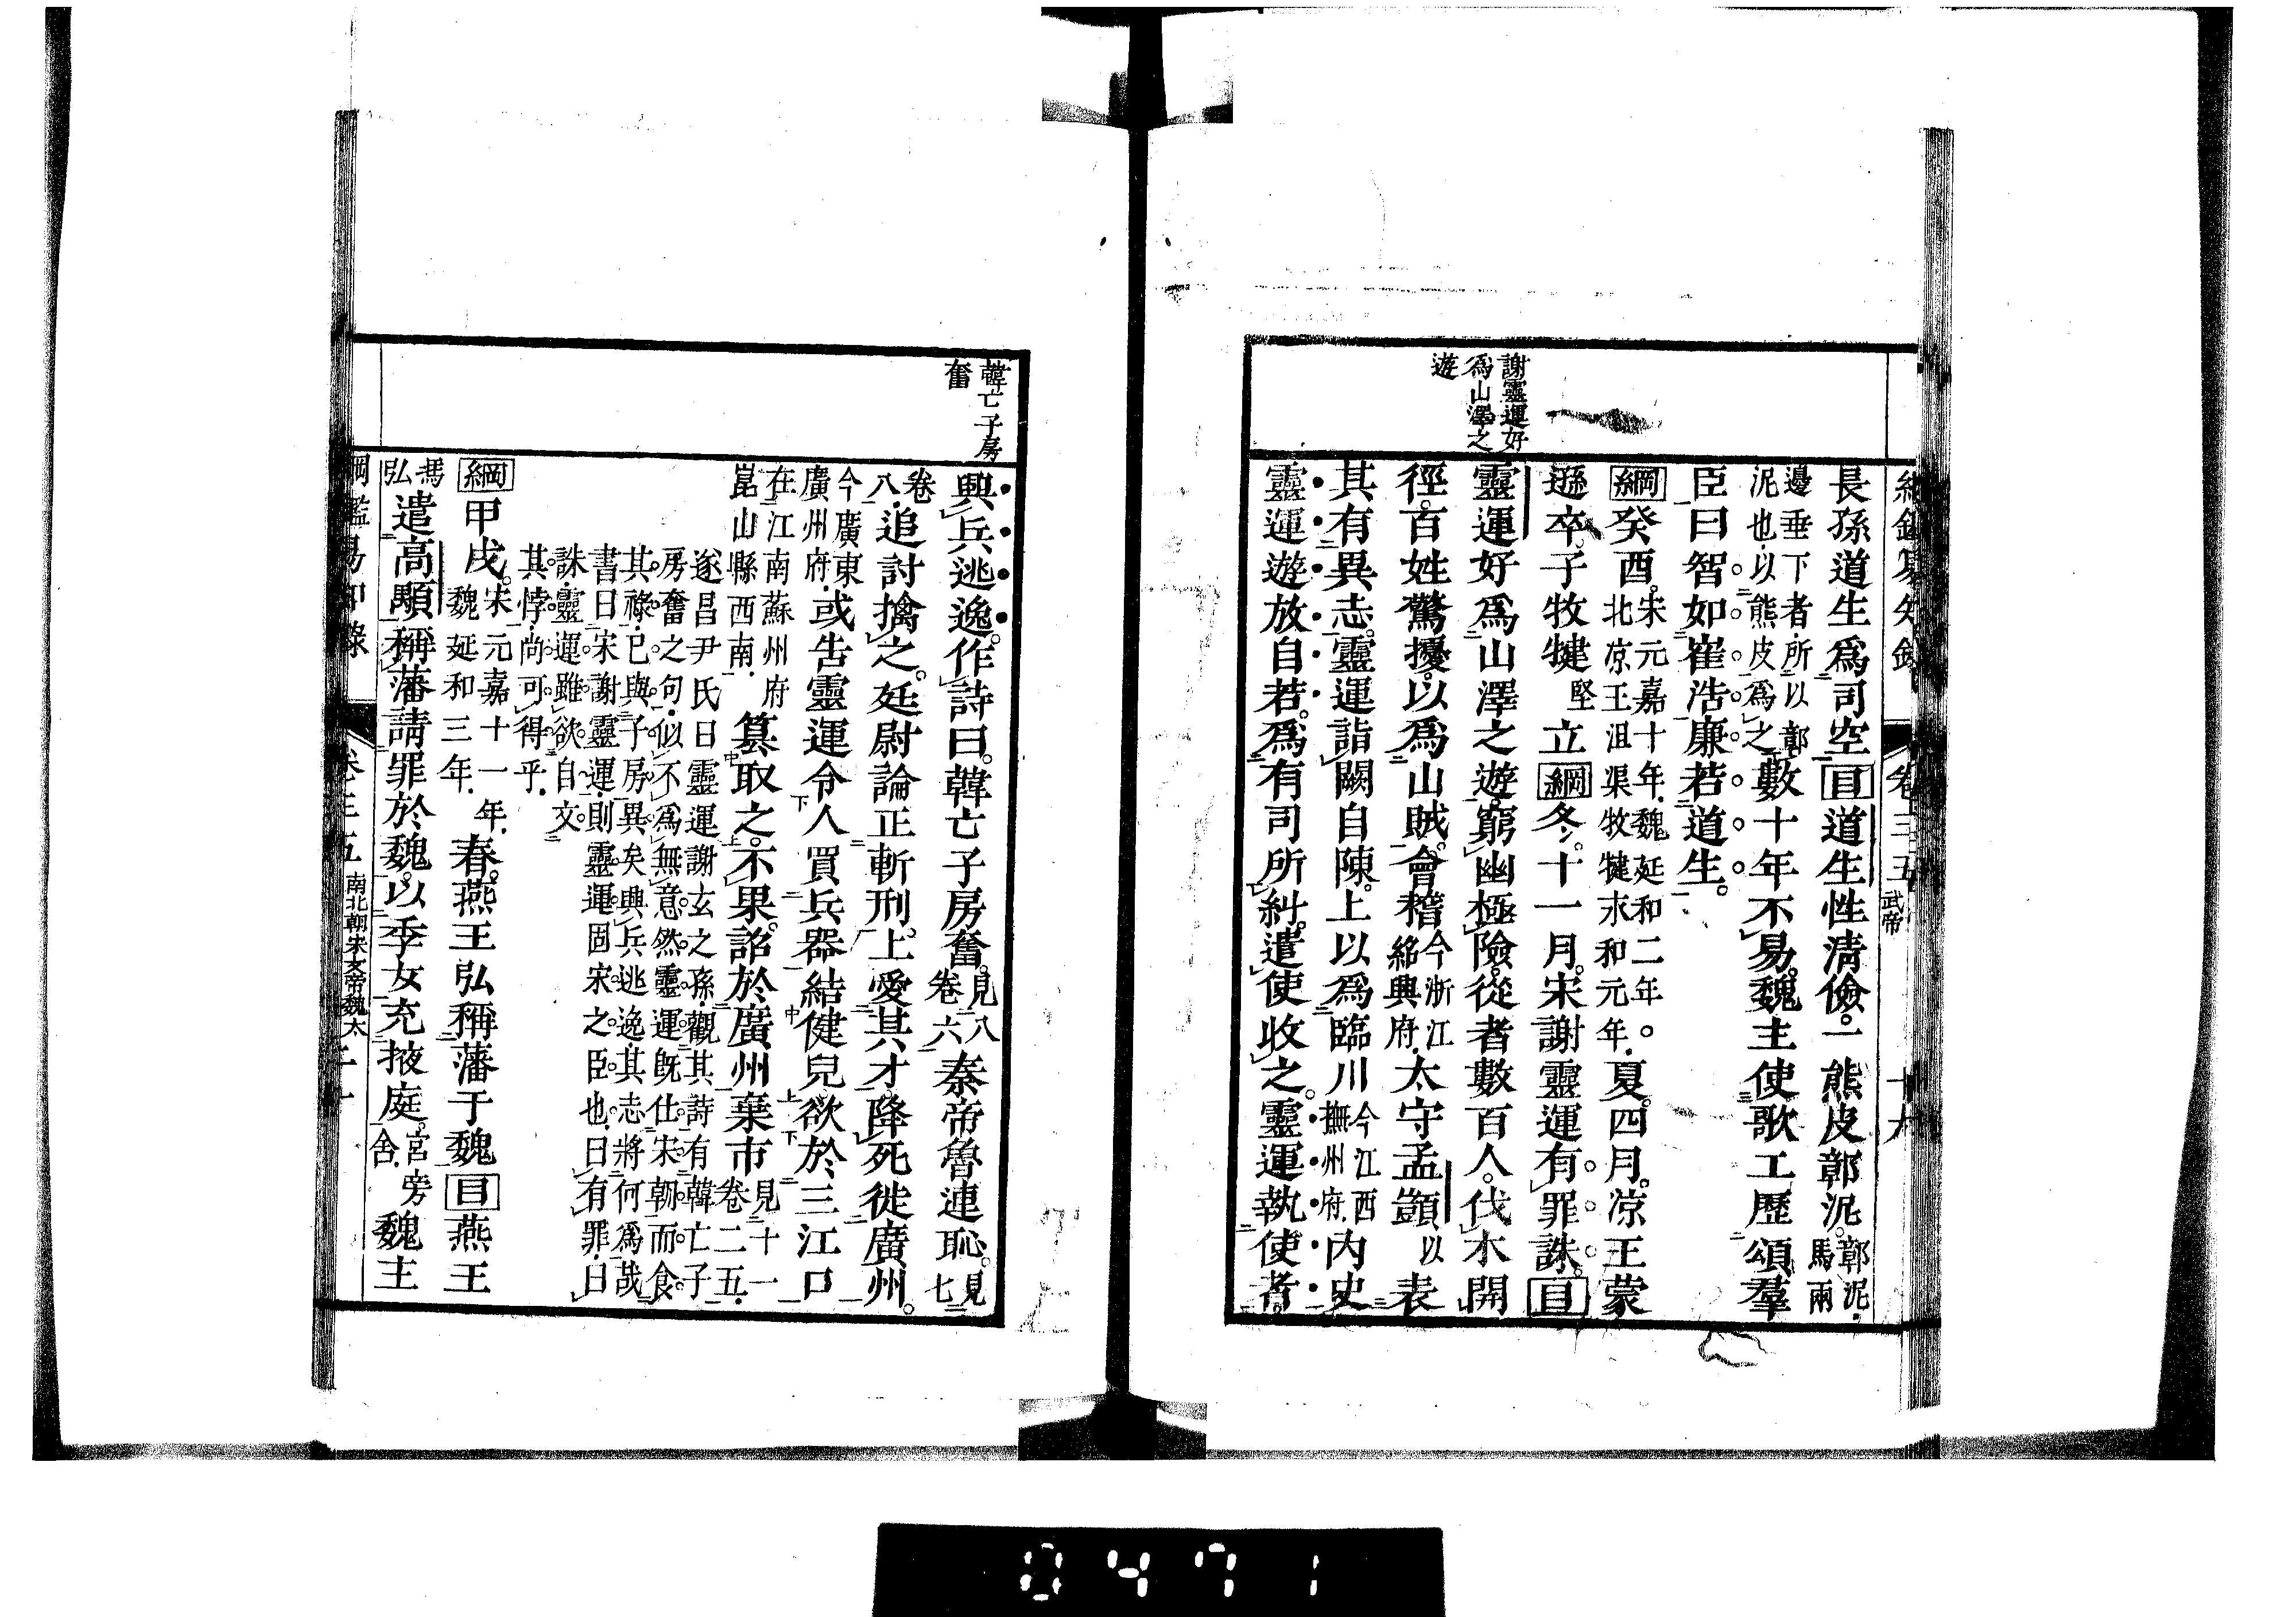 綱鑑易知錄 卷三五 武帝 十九
謝靈運好
爲山澤之
遊
長孫道生爲司空目道生性淸儉一熊皮鄣泥鄣泥馬兩
邊垂下者所以鄣泥也以熊皮爲之數十年不易魏主使歌工歷頌羣
臣曰智如崔浩廉若道生
綱癸酉宋元嘉十年魏延和二年○北凉王沮渠牧犍永和元年夏四月凉王蒙
遜卒子牧犍堅立綱冬十一月宋謝靈運有罪誅目
靈運好爲山澤之遊窮幽極險從者數百人伐木開
徑百姓驚擾以爲山賊會稽今浙江紹興府太守孟顗以表
其有異志靈運詣闕自陳上以爲臨川今江西撫州府內史
靈運遊放自若爲有司所糾遣使收之靈運執使者
韓亡子房
奮
興兵逃逸作詩曰韓亡子房奮見八卷六秦帝魯連恥見七
卷八追討擒之廷尉論正斬刑上愛其才降死徙廣州
今廣東廣州府或告靈運令人買兵器結健兒欲於三江口
在江南蘇州府崑山縣西南篡取之不果詔於廣州棄市見十一卷二五
遂昌尹氏曰靈運謝玄之孫觀其詩有韓亡子
房奮之句似不爲無意然靈運旣仕宋朝而食
其祿已與子房異矣興兵逃逸其志將何爲哉
書曰宋謝靈運則靈運固宋之臣也曰有罪曰
誅靈運雖欲自文
其悖尚可得乎
綱甲戌宋元嘉十一年魏延和三年春燕王弘稱藩于魏目燕王
馮弘遣高顒稱藩請罪於魏以季女充掖庭宮旁舍魏主
綱鑑易知錄 卷三五 南北朝宋文帝魏太 二十
0471